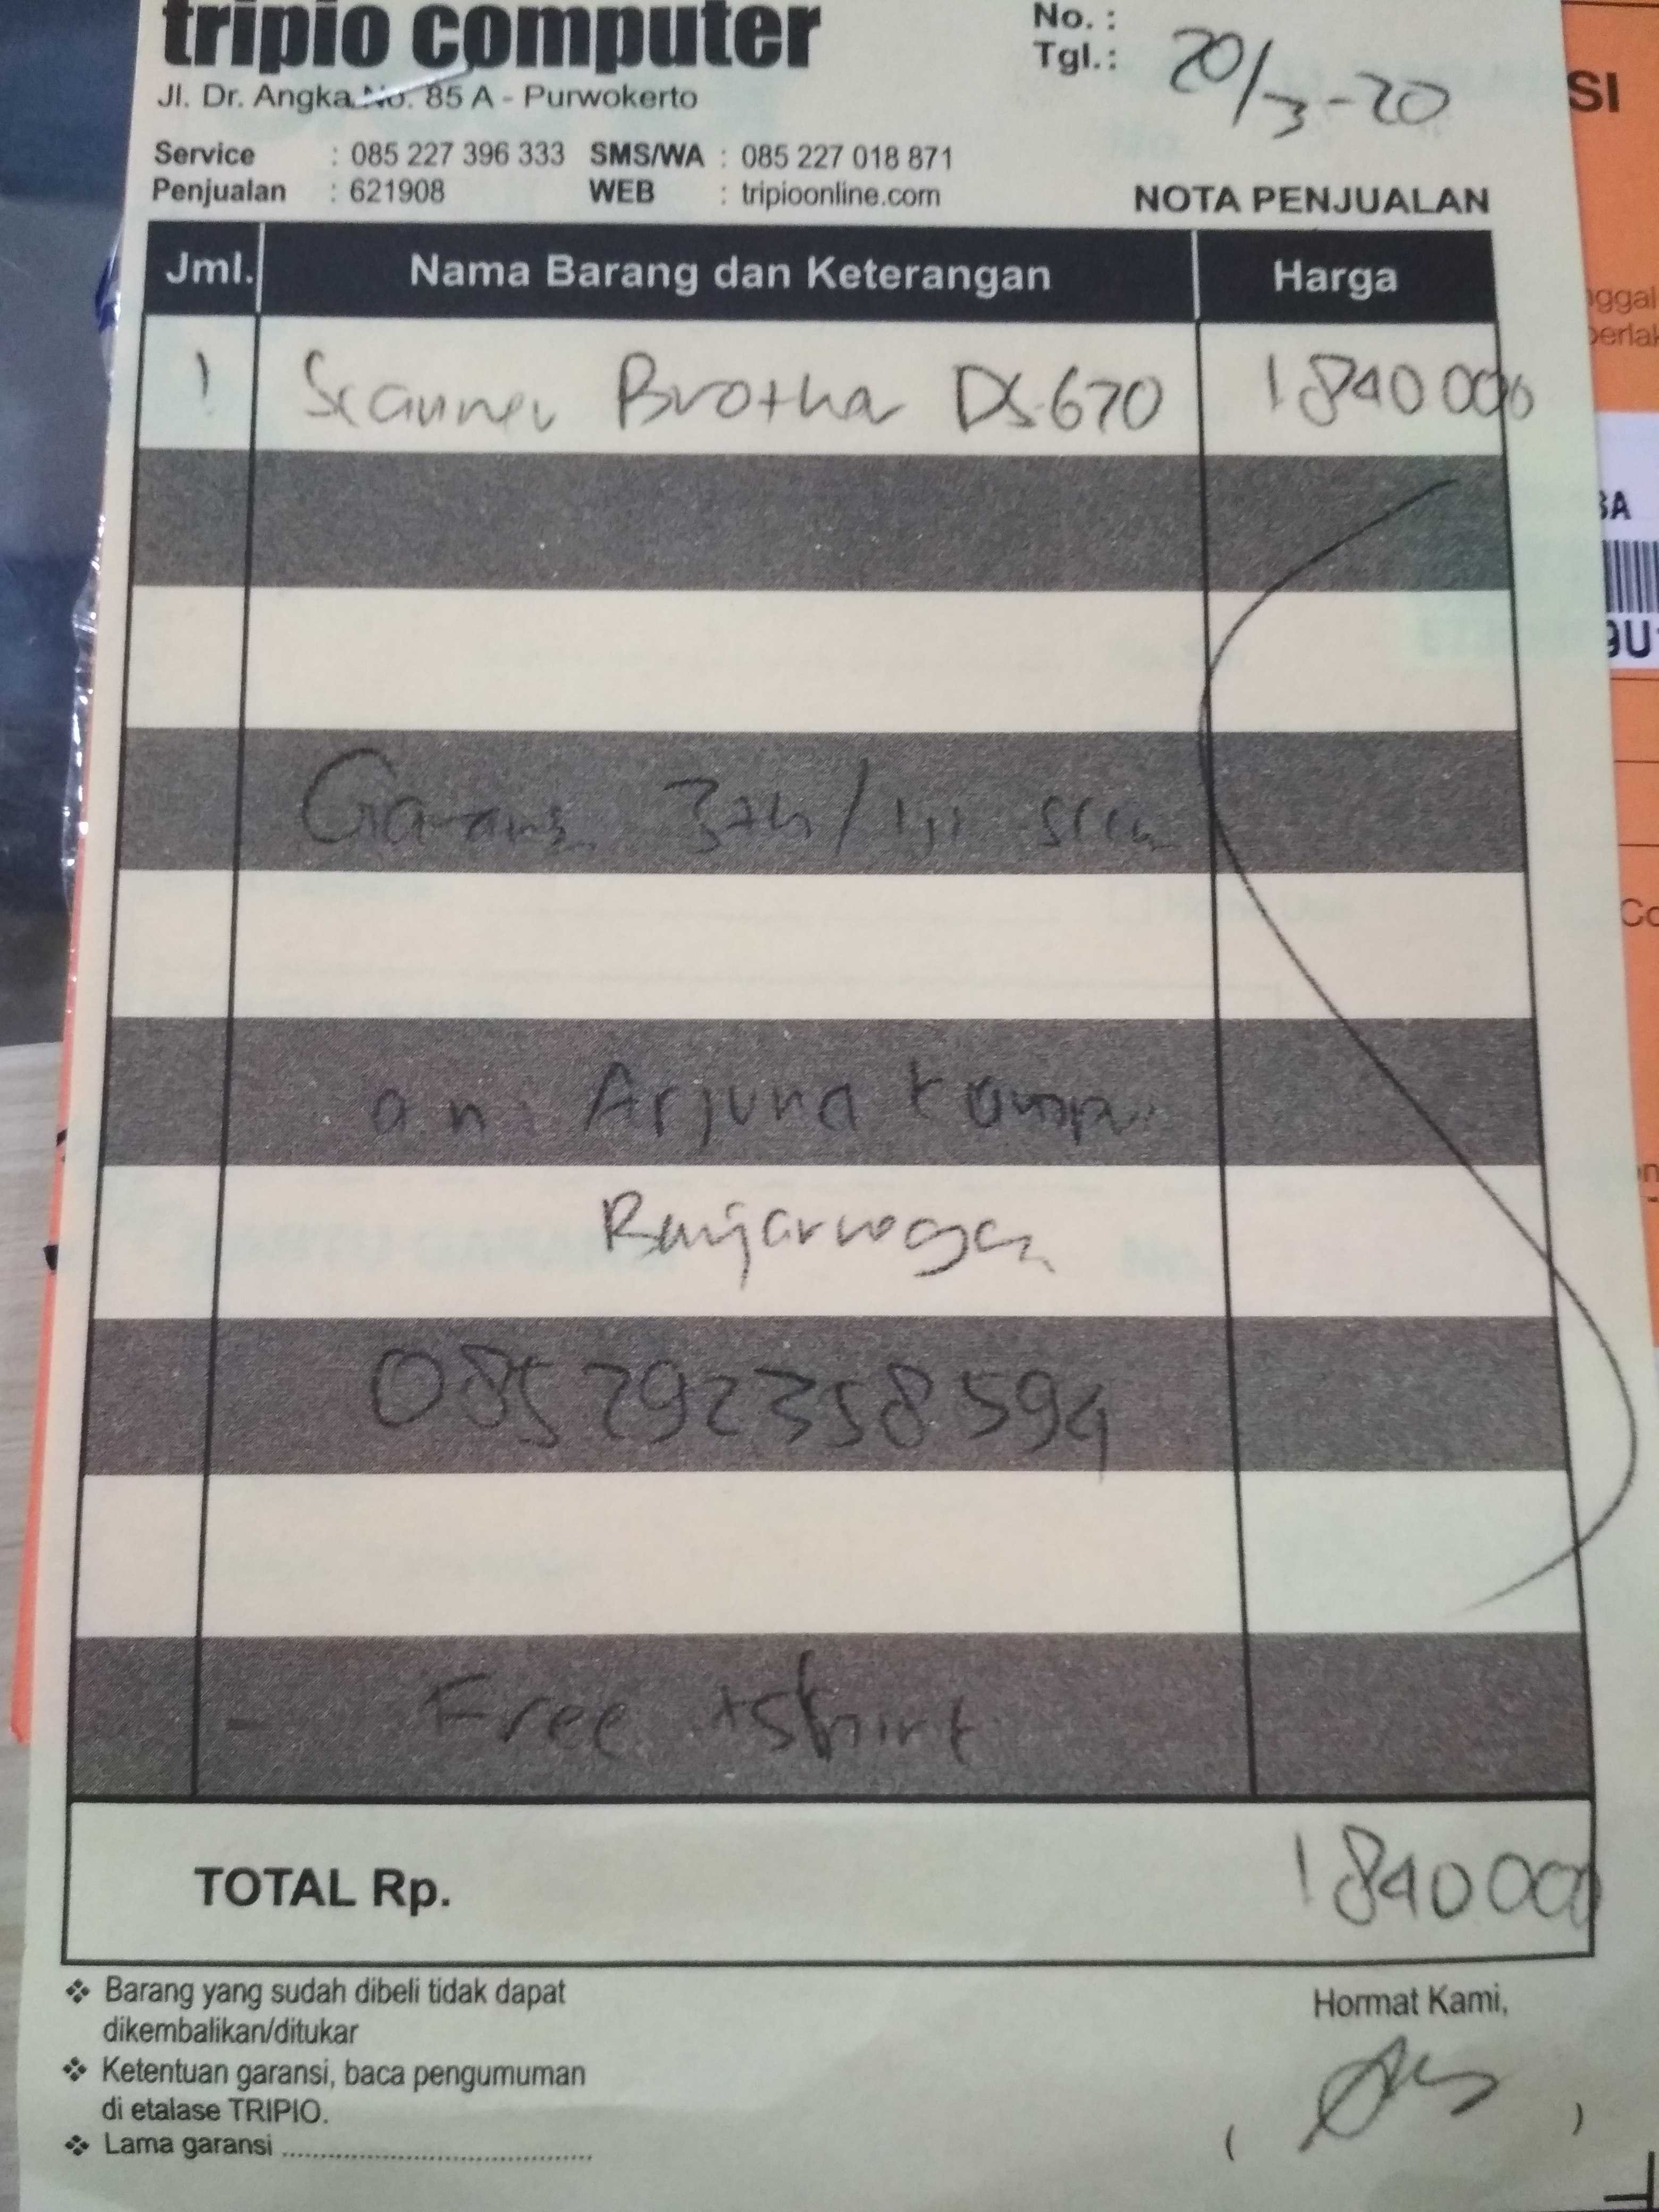 tripio computer
Jl. Dr. Angka No. 85 A - Purwokerto
No. :
Tgl. : 20/3-20
Service : 085 227 396 333 SMS/WA : 085 227 018 871
Penjualan : 621908 WEB : tripioonline.com
NOTA PENJUALAN
Jml. Nama Barang dan Keterangan Harga
1 Scanner Brother DS-670 1840000
Garansi 3th/
an. Arjuna komp.
Banjarnegara
085292358594
- Free tshirt
TOTAL Rp. 1840000
❖ Barang yang sudah dibeli tidak dapat
dikembalikan/ditukar
❖ Ketentuan garansi, baca pengumuman
di etalase TRIPIO.
❖ Lama garansi
Hormat Kami,
( )
SI
nggal
berlak
9U